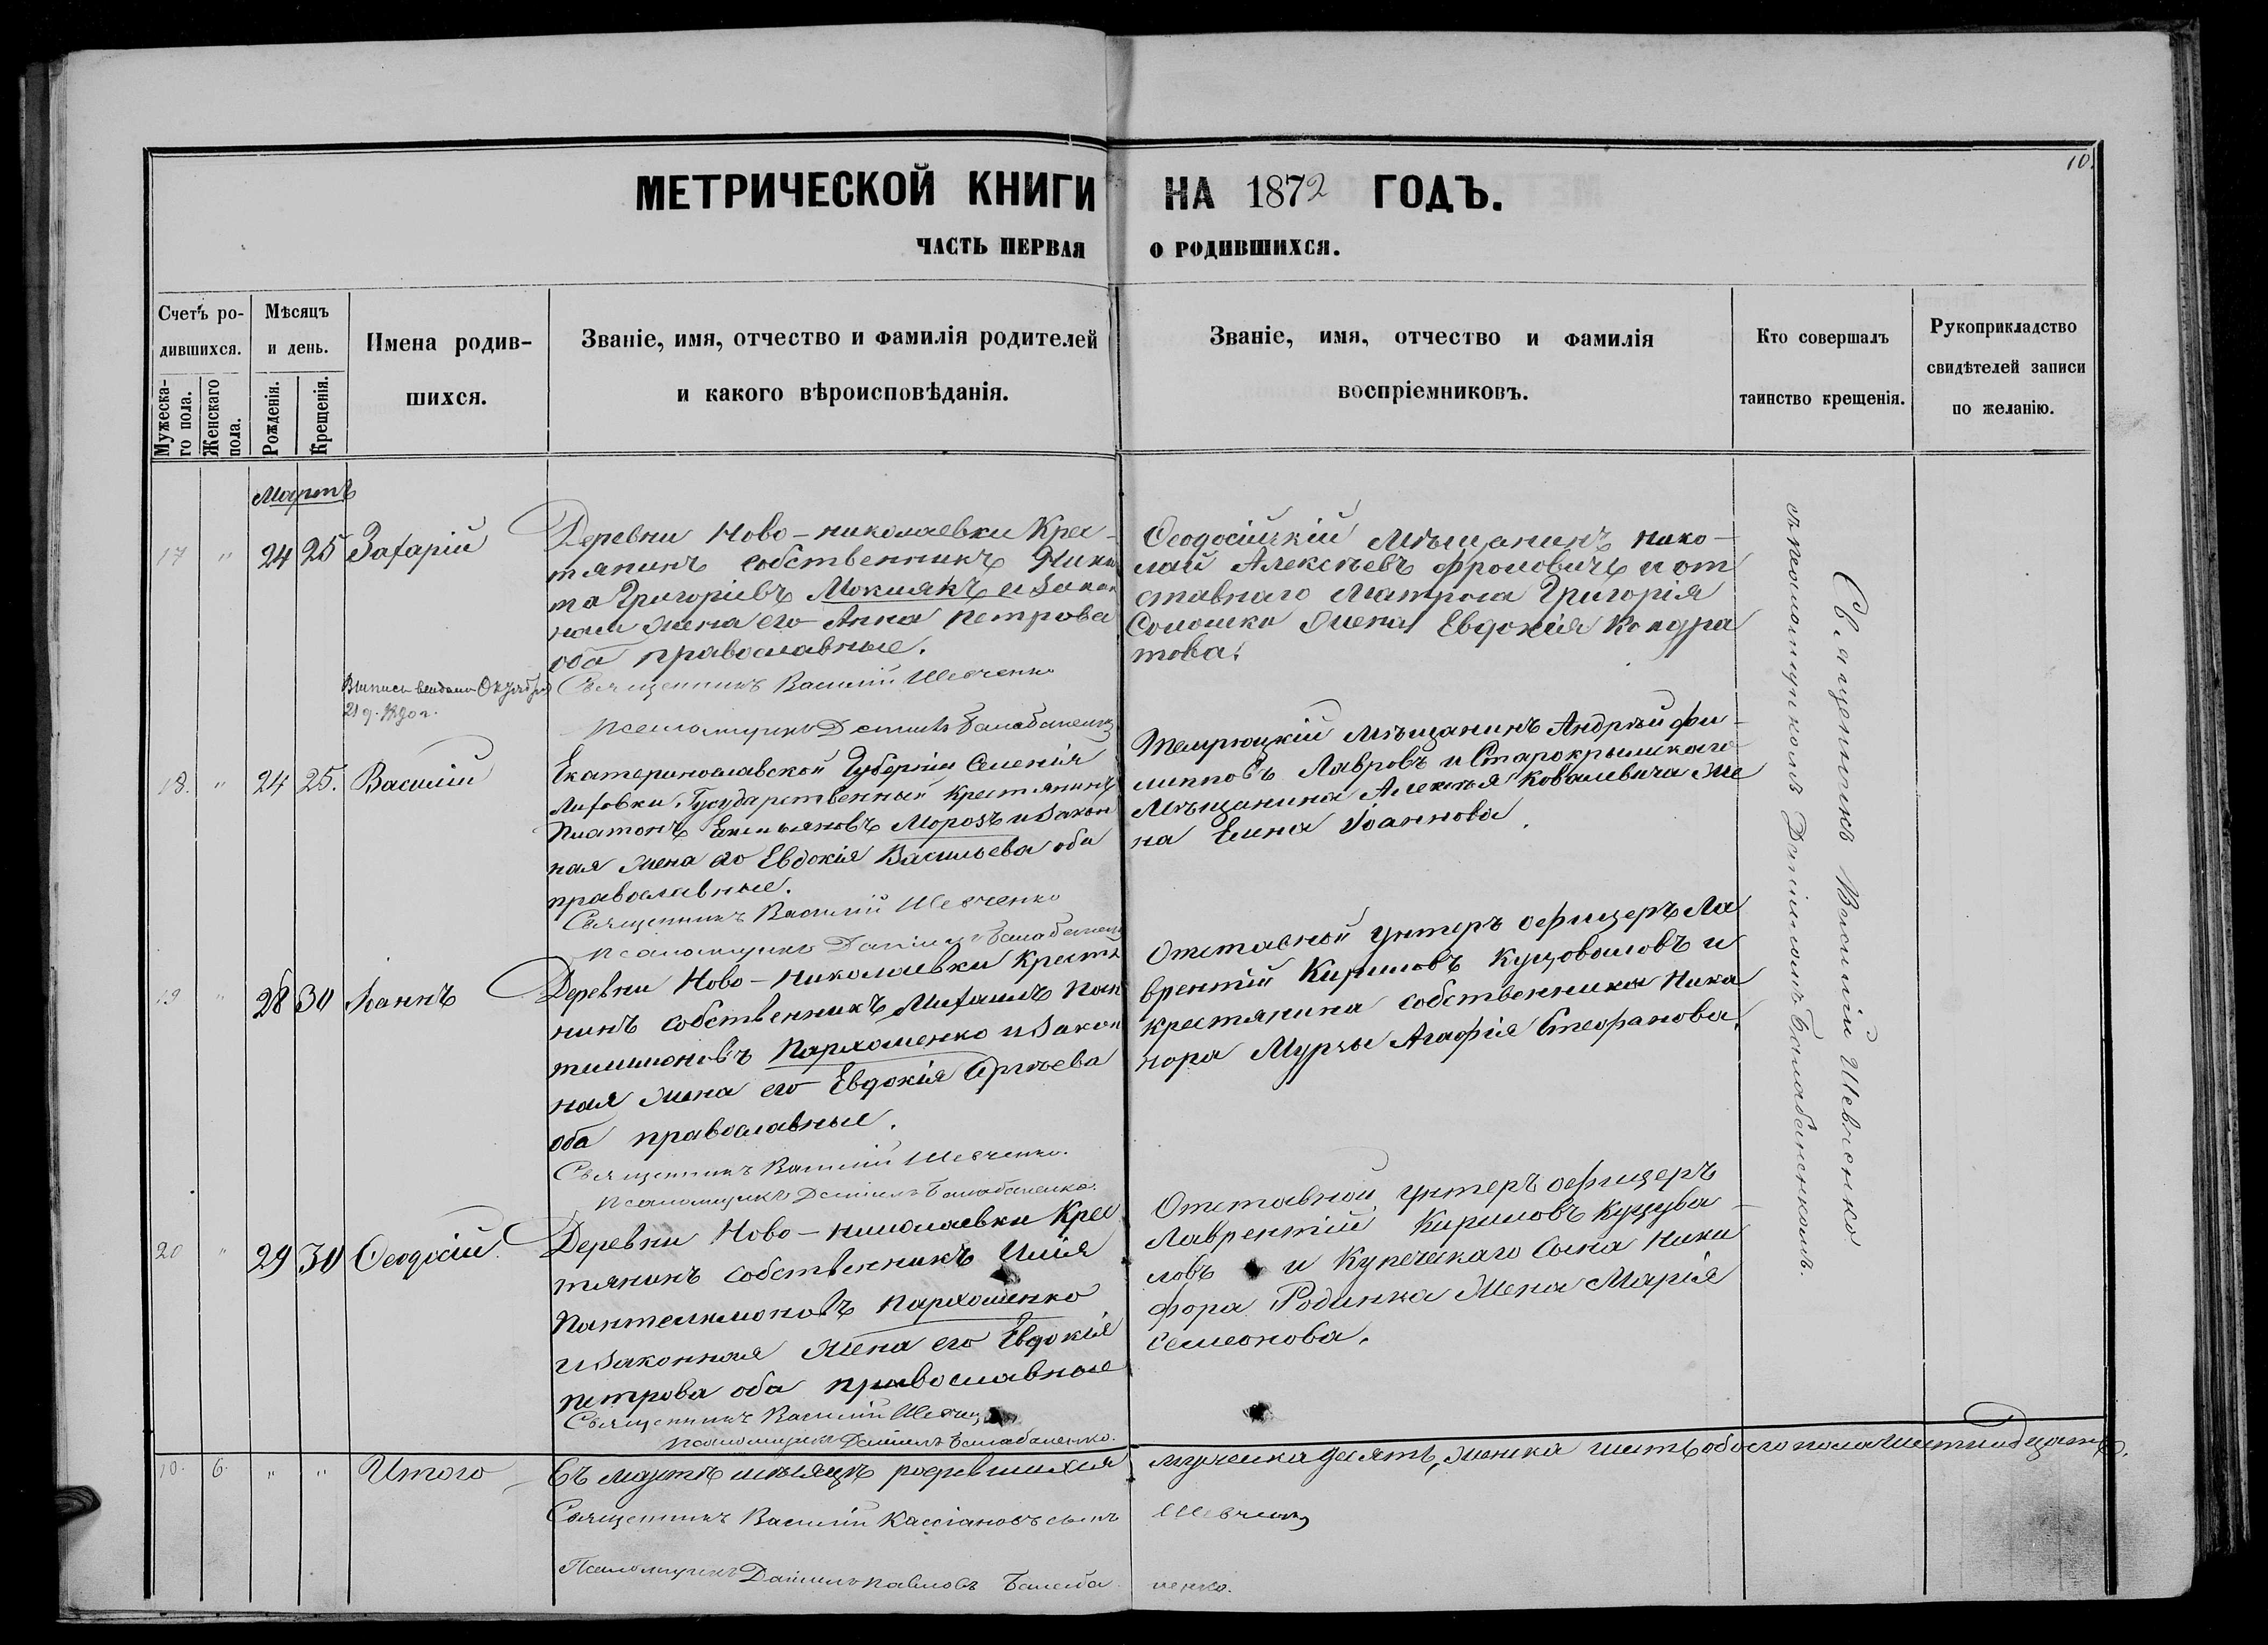 10.
МЕТРИЧЕСКОЙ КНИГИ НА 1872 ГОДЪ.
ЧАСТЬ ПЕРВАЯ О РОДИВШИХСЯ.
Счетъ ро-
дившихся.
Мужеска-
го пола.
Женскаго
пола.
Мѣсяцъ
и день.
Рожденія.
Крещенія.
Имена родив-
шихся.
Званіе, имя, отчество и фамилія родителей
и какого вѣроисповѣданія.
Званіе, имя, отчество и фамилія
воспріемниковъ.
Кто совершалъ
таинство крещенія.
Рукоприкладство
свидѣтелей записи
по желанію.
Мартъ
17 " 24 25 Захарій
Деревни Ново-николаевки Крес-
тянинъ собственникъ Ники
та Григоріевъ Мокиякъ и закон
ная жена его Анна Петрова
оба православные.
Священникъ Василій Шевченко
Псаломщикъ Даніилъ Балабаненко
Ѳеодосійскій мѣщанинъ нико-
лай Алексѣевъ Фроловичъ и от
ставнаго матроса Григорія
Соломки жена Евдокія Кондра
това.
Выпись выдана Октября
21 д.
18. " 24 25. Василій
Екатеринославской Губерніи Селенія
Государственный крестянинъ
Платонъ Емельяновъ Морозъ и закон
ная жена его Евдокія Васильева оба
православные.
Священникъ Василій Шевченко
Псаломщикъ Даніилъ Балабаненко
Темрюцкій мѣщанинъ Андрей фи-
липповъ Лавровъ и Старокрымскаго
мѣщанина Алексѣя Ковалевича же
на Елена Іоаннова.
19 " 28 30 Іоаннъ
Деревни Ново-Николаевки крестя
нинъ собственникъ Михаилъ Пан
телимоновъ Пархоменко и закон
ная жена его Евдокія
оба православные.
Священникъ Василій Шевченко.
Псаломщикъ Даніилъ Балабаненко.
Отставной унтеръ офицеръ Ла
врентій Кириловъ Куцоваловъ и
крестянина собственника Ника
нора Мурзы Агафія Стефанова.
20 " 29 30 Ѳеодосій.
Деревни Ново-николаевки Крес
тянинъ собственникъ Илія
Пантелимоновъ Пархоменко
и законная жена его Евдокія
Петрова оба православные
Священникъ Василій Шевченко
Псаломщикъ Даніилъ Балабаненко.
Отставной унтеръ офицеръ
Лаврентій Кириловъ Куцува-
ловъ и Купеческаго Сына Ники
фора Родинка жена Марія
Семеонова.
Священникъ Василій Шевченко
съ псаломщикомъ Даніиломъ Балабаненкомъ.
10. 6. " " Итого
Въ мартѣ мѣсяцѣ родившихся мужеска десять, женска шесть обоего пола шестнадцать.
Священникъ Василій Кассіановъ сынъ Шевченко
Псаломщикъ Даніилъ Павловъ Балаба ненко.